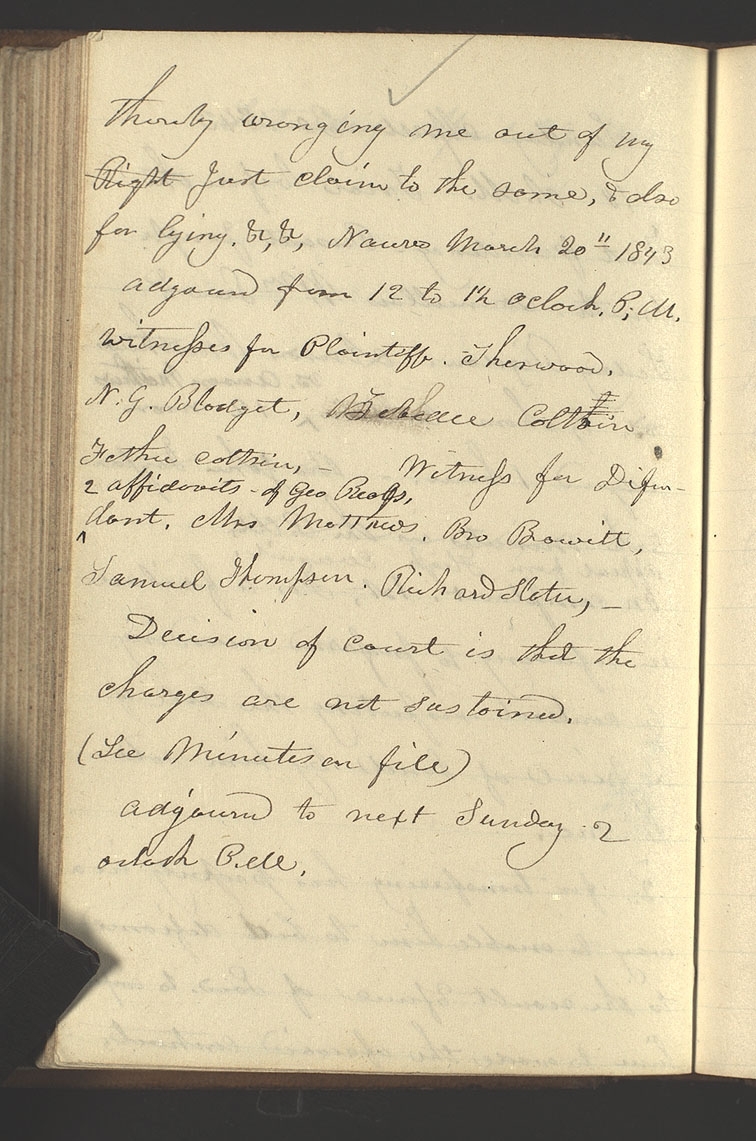 thereby wronging me out of my
Right Just claim to the same, & also
for lying, &c, &c, Nauvoo March 20" 1843
adjourd from 12 to 1½ oclock. P; M.
witnesses for Plaintiff. Sherwood,
N. G. Blodget, Coltrin
Father coltrin, – Witness for Difen-
2 affidavits – of Geo Reags,
dant, Mrs Matthews. Bro Bowitt,
Samuel Thompson. Richard Slater, –
Decision of court is that the
charges are not sustained.
(See Minutes on file)
adjourd to next Sunday 2
oclock P.M.